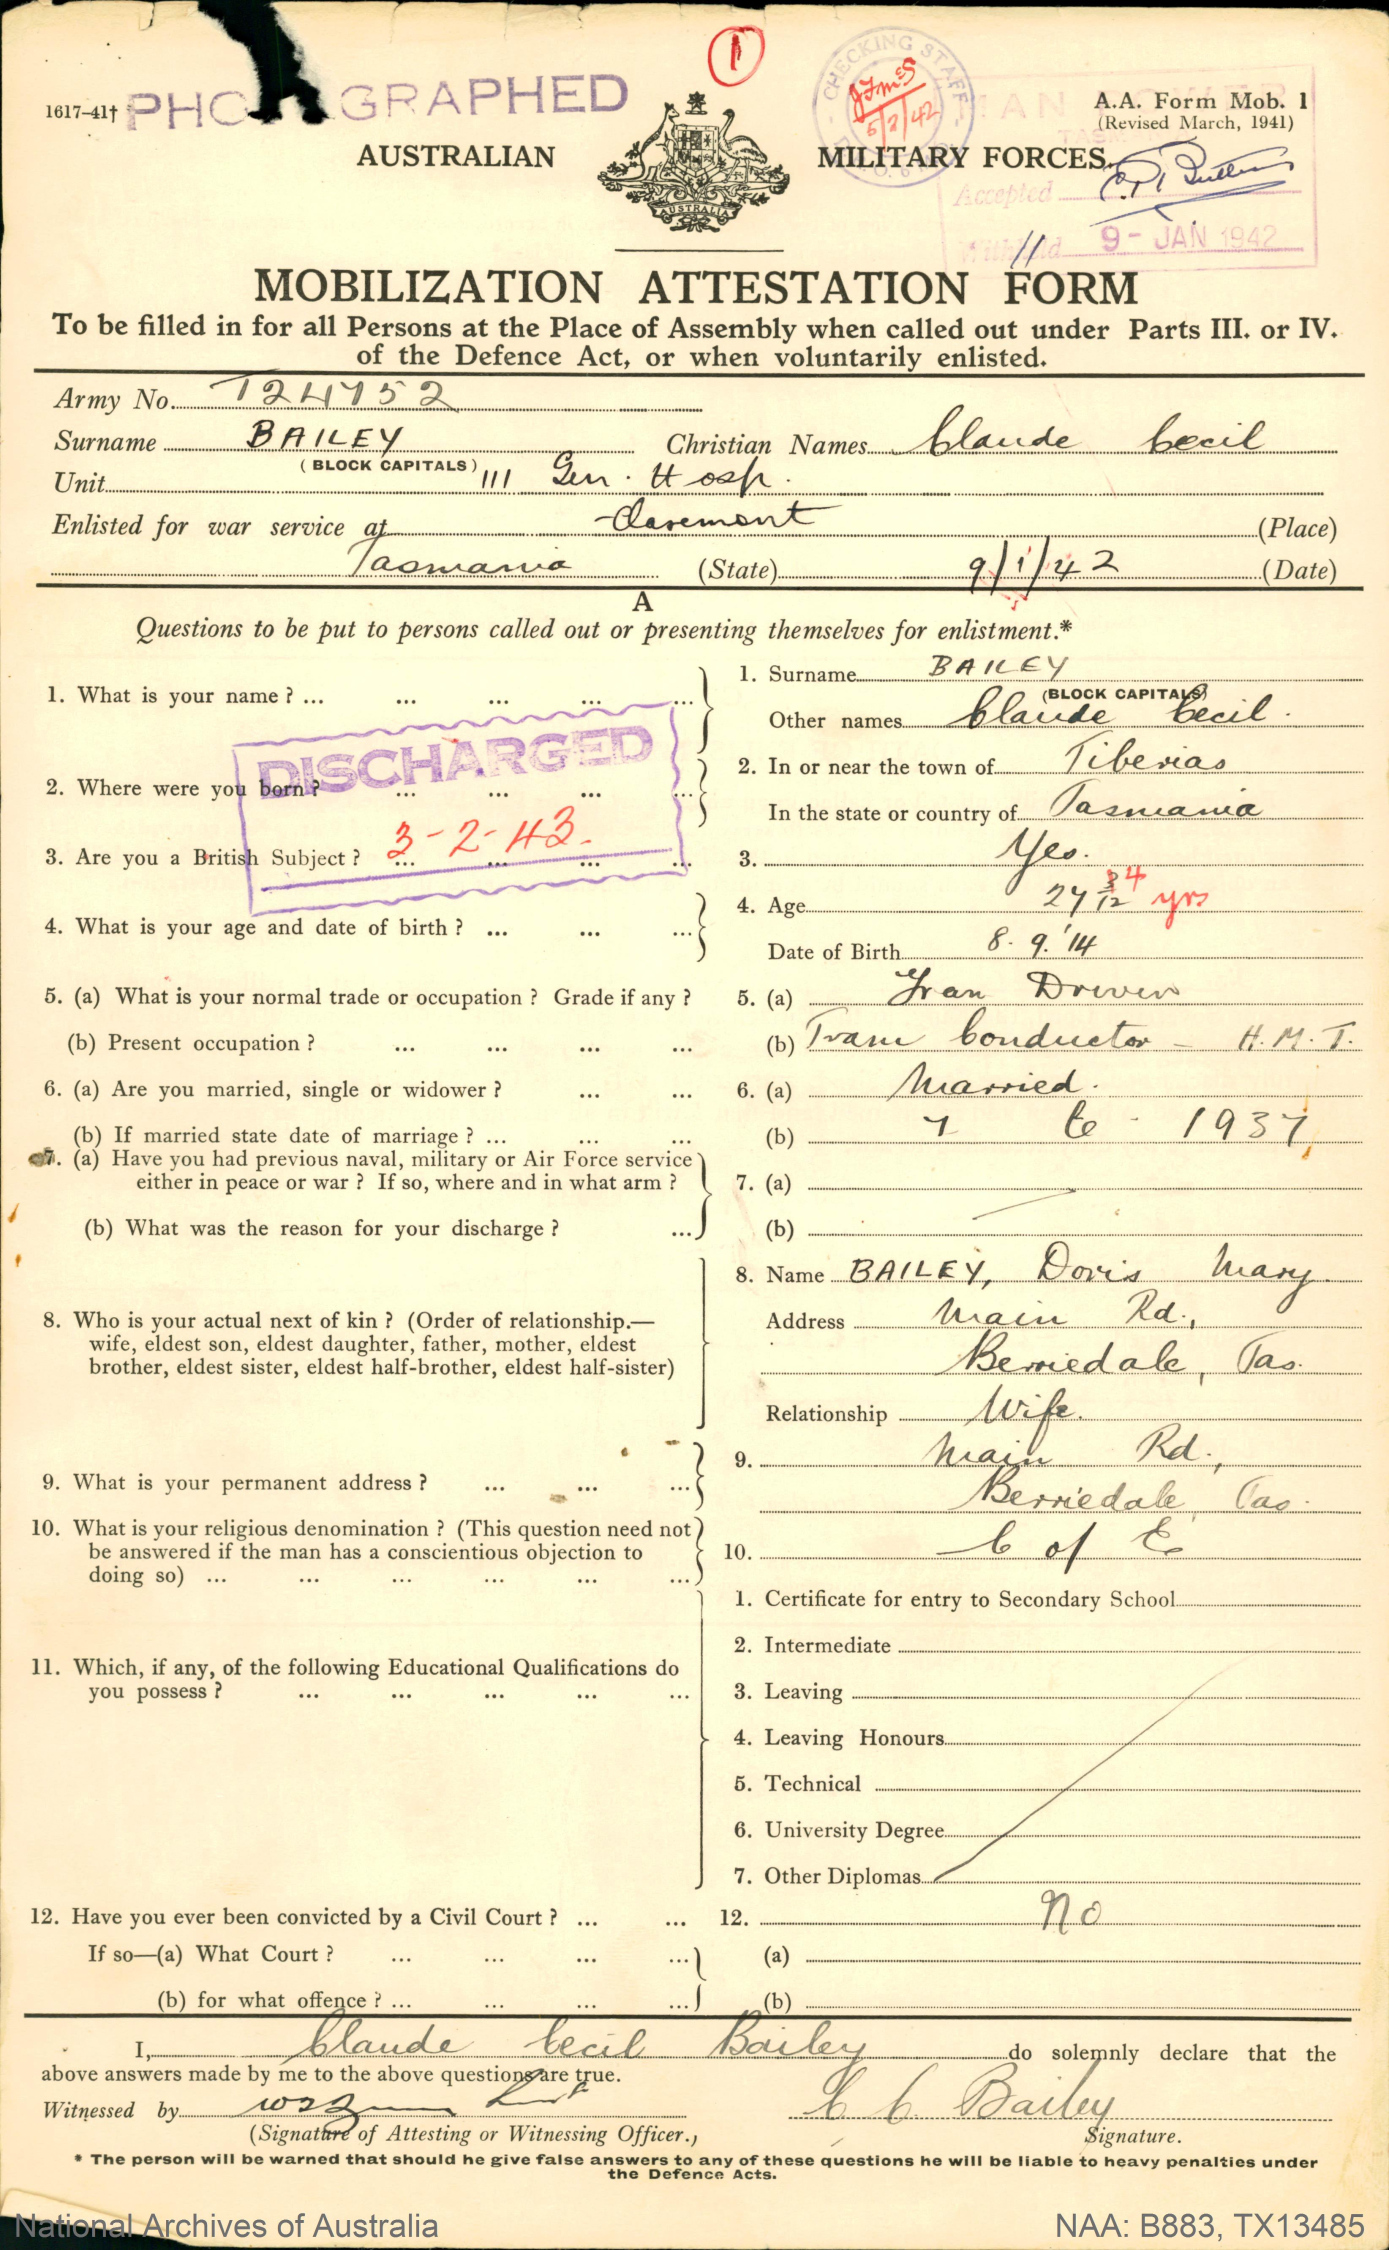 1617-41†
PHOTOGRAPHED
1
CHECKING STAFF
5/2/42
MAN POWER
A.A. Form Mob. 1
(Revised March, 1941)
AUSTRALIAN MILITARY FORCES.
AUSTRALIA
Accepted
Withheld
9- JAN 1942
MOBILIZATION ATTESTATION FORM
To be filled in for all Persons at the Place of Assembly when called out under Parts III. or IV.
of the Defence Act, or when voluntarily enlisted.
Army No. T24752
Surname BAILEY Christian Names Claude Cecil
(BLOCK CAPITALS)
Unit 111 Gen. Hosp.
Enlisted for war service at Claremont (Place)
Tasmania (State) 9/1/42 (Date)
A
Questions to be put to persons called out or presenting themselves for enlistment.*
1. What is your name? ... ... ... ... ...
1. Surname BAILEY
(BLOCK CAPITALS)
Other names Claude Cecil.
DISCHARGED
3-2-43.
2. Where were you born? ... ... ... ...
2. In or near the town of Tiberias
In the state or country of Tasmania
3. Are you a British Subject? ... ... ... ...
3. Yes.
4. What is your age and date of birth? ... ... ...
4. Age 27 3/12 4 yrs
Date of Birth 8. 9. '14
5. (a) What is your normal trade or occupation? Grade if any?
5. (a) Tram Driver
(b) Present occupation? ... ... ... ...
(b) Tram Conductor - H.M.T.
6. (a) Are you married, single or widower? ... ...
6. (a) Married.
(b) If married state date of marriage? ... ... ...
(b) 7 1937
7. (a) Have you had previous naval, military or Air Force service
either in peace or war? If so, where and in what arm?
7. (a)
(b) What was the reason for your discharge? ...
(b)
8. Who is your actual next of kin? (Order of relationship.—
wife, eldest son, eldest daughter, father, mother, eldest
brother, eldest sister, eldest half-brother, eldest half-sister)
8. Name BAILEY, Doris Mary
Address Main Rd.,
Berriedale, Tas.
Relationship Wife.
9. What is your permanent address? ... ... ...
9. Main Rd.,
Berriedale Tas.
10. What is your religious denomination? (This question need not
be answered if the man has a conscientious objection to
doing so) ... ... ... ... ... ...
10. C of E
11. Which, if any, of the following Educational Qualifications do
you possess? ... ... ... ... ...
1. Certificate for entry to Secondary School
2. Intermediate
3. Leaving
4. Leaving Honours
5. Technical
6. University Degree
7. Other Diplomas
12. Have you ever been convicted by a Civil Court? ... ...
12. No
If so—(a) What Court? ... ... ... ...
(a)
(b) for what offence? ... ... ... ...
(b)
I, Claude Cecil Bailey do solemnly declare that the
above answers made by me to the above questions are true.
Witnessed by
C C Bailey
(Signature of Attesting or Witnessing Officer.)
Signature.
* The person will be warned that should he give false answers to any of these questions he will be liable to heavy penalties under
the Defence Acts.
National Archives of Australia
NAA: B883, TX13485